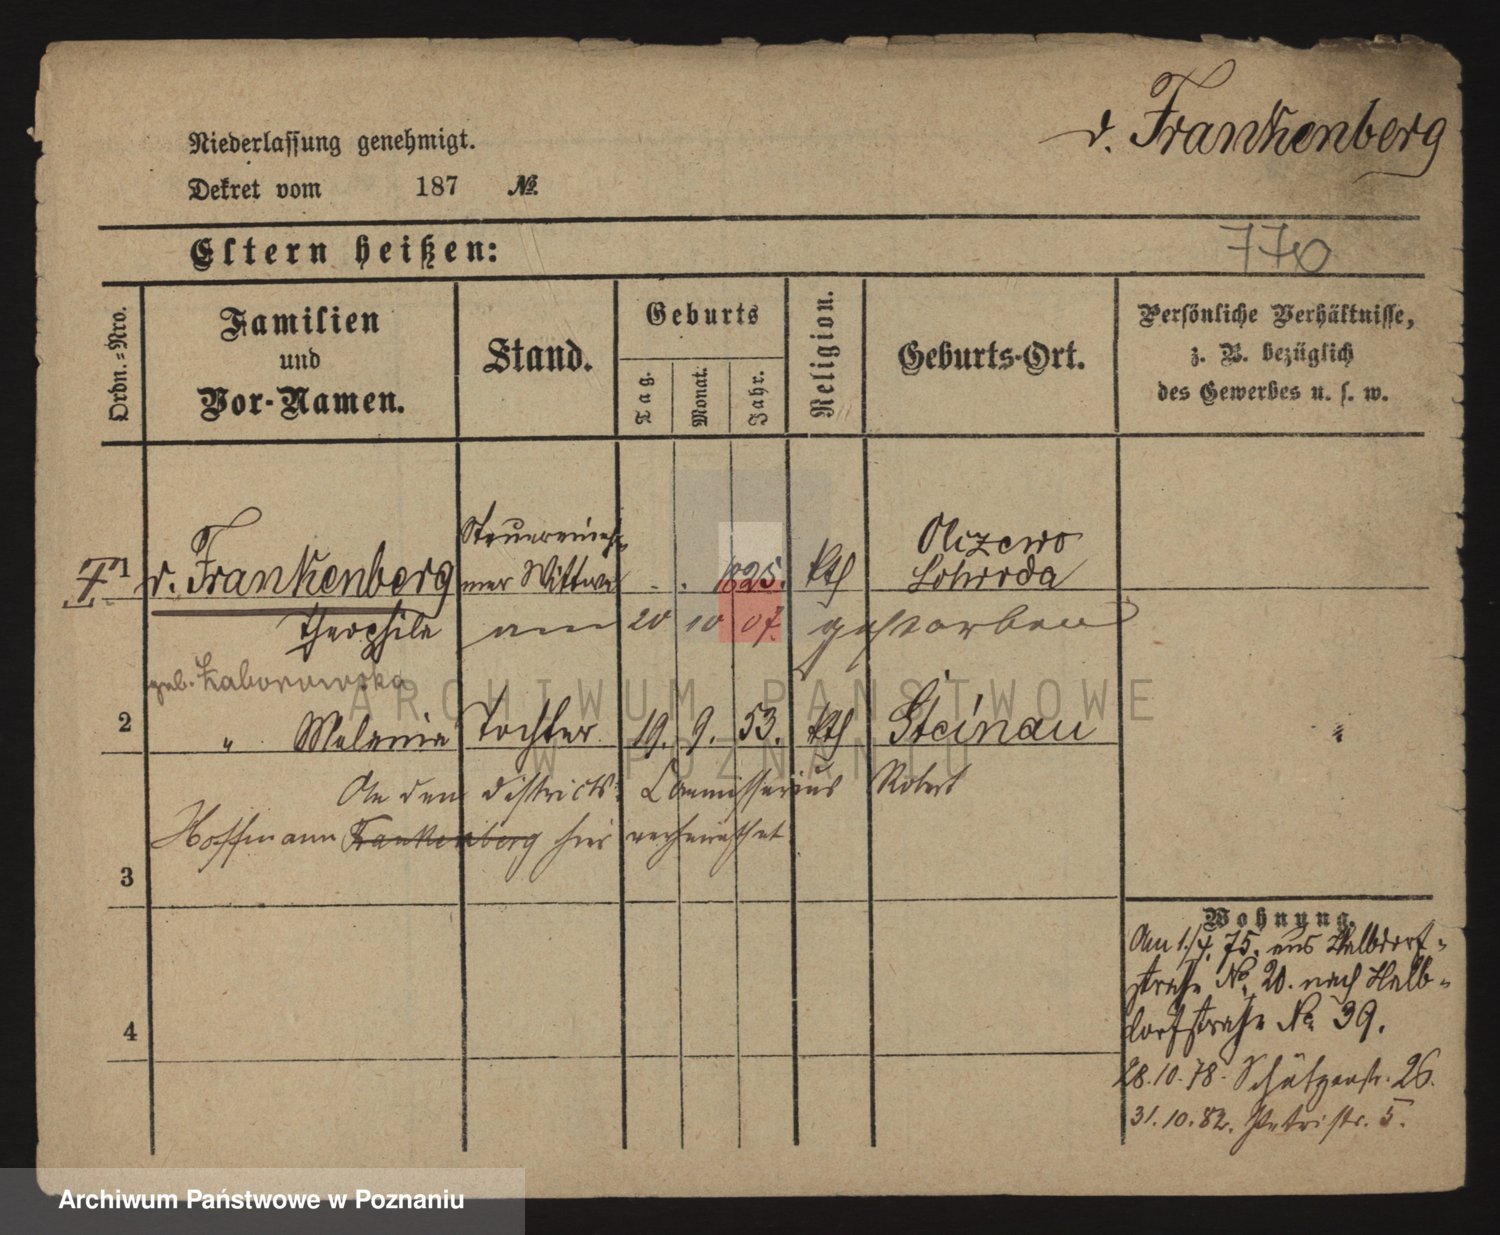 v. Frankenberg
Niederlassung genehmigt.
Dekret vom 187 №
Eltern heißen:
770
Ordn.-Nro.
Familien
und
Vor-Namen.
Stand.
Geburts
Tag.
Monat.
Jahr.
Religion.
Geburts-Ort.
Persönliche Verhältnisse,
z. B. bezüglich
des Gewerbes u. s. w.
Steuereineh-
mer Wittwe
1 v. Frankenberg - . 1825. kth
Olszewo
Theophila am 20 10 07. gestorben
geb. Zaborowska
2 " Melanie Tochter 19. 9. 53. kth Steinau
An den districts Commissarius Robert
Hoffmann Frankenberg hier verheirathet
3
4
Wohnung.
Am 1./4. 75. aus Halbdorf-
straße № 20. nach Halb-
dorfstraße № 39.
28.10.78. Schützenstr. 26.
31.10.82. Petristr. 5.
ARCHIWUM PAŃSTWOWE
W POZNANIU
Archiwum Państwowe w Poznaniu